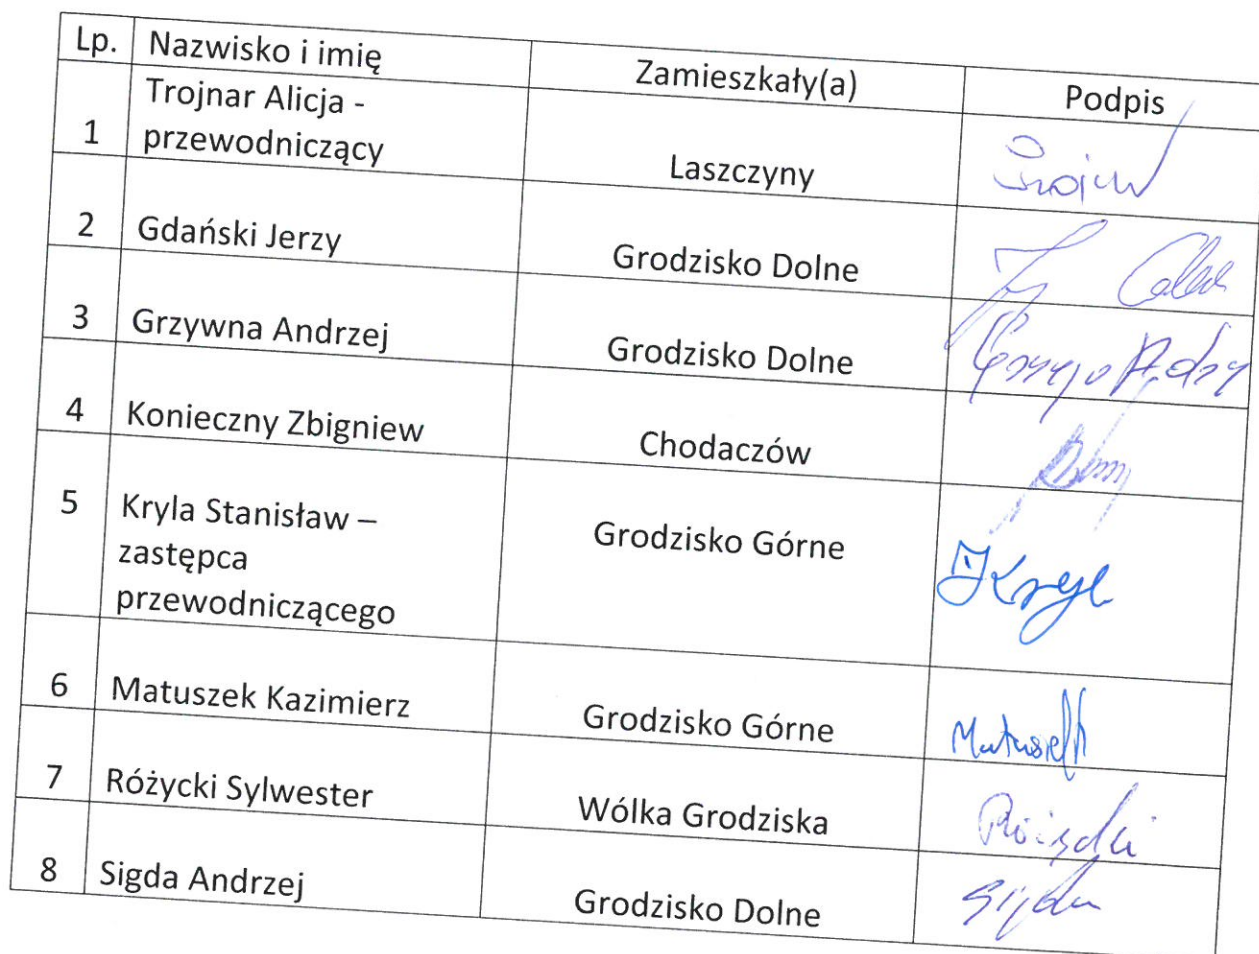 Lp. Nazwisko i imię Zamieszkały(a) Podpis
1 Trojnar Alicja -
przewodniczący Laszczyny
2 Gdański Jerzy Grodzisko Dolne
3 Grzywna Andrzej Grodzisko Dolne
4 Konieczny Zbigniew Chodaczów
5 Kryla Stanisław –
zastępca
przewodniczącego Grodzisko Górne
6 Matuszek Kazimierz Grodzisko Górne
7 Różycki Sylwester Wólka Grodziska
8 Sigda Andrzej Grodzisko Dolne